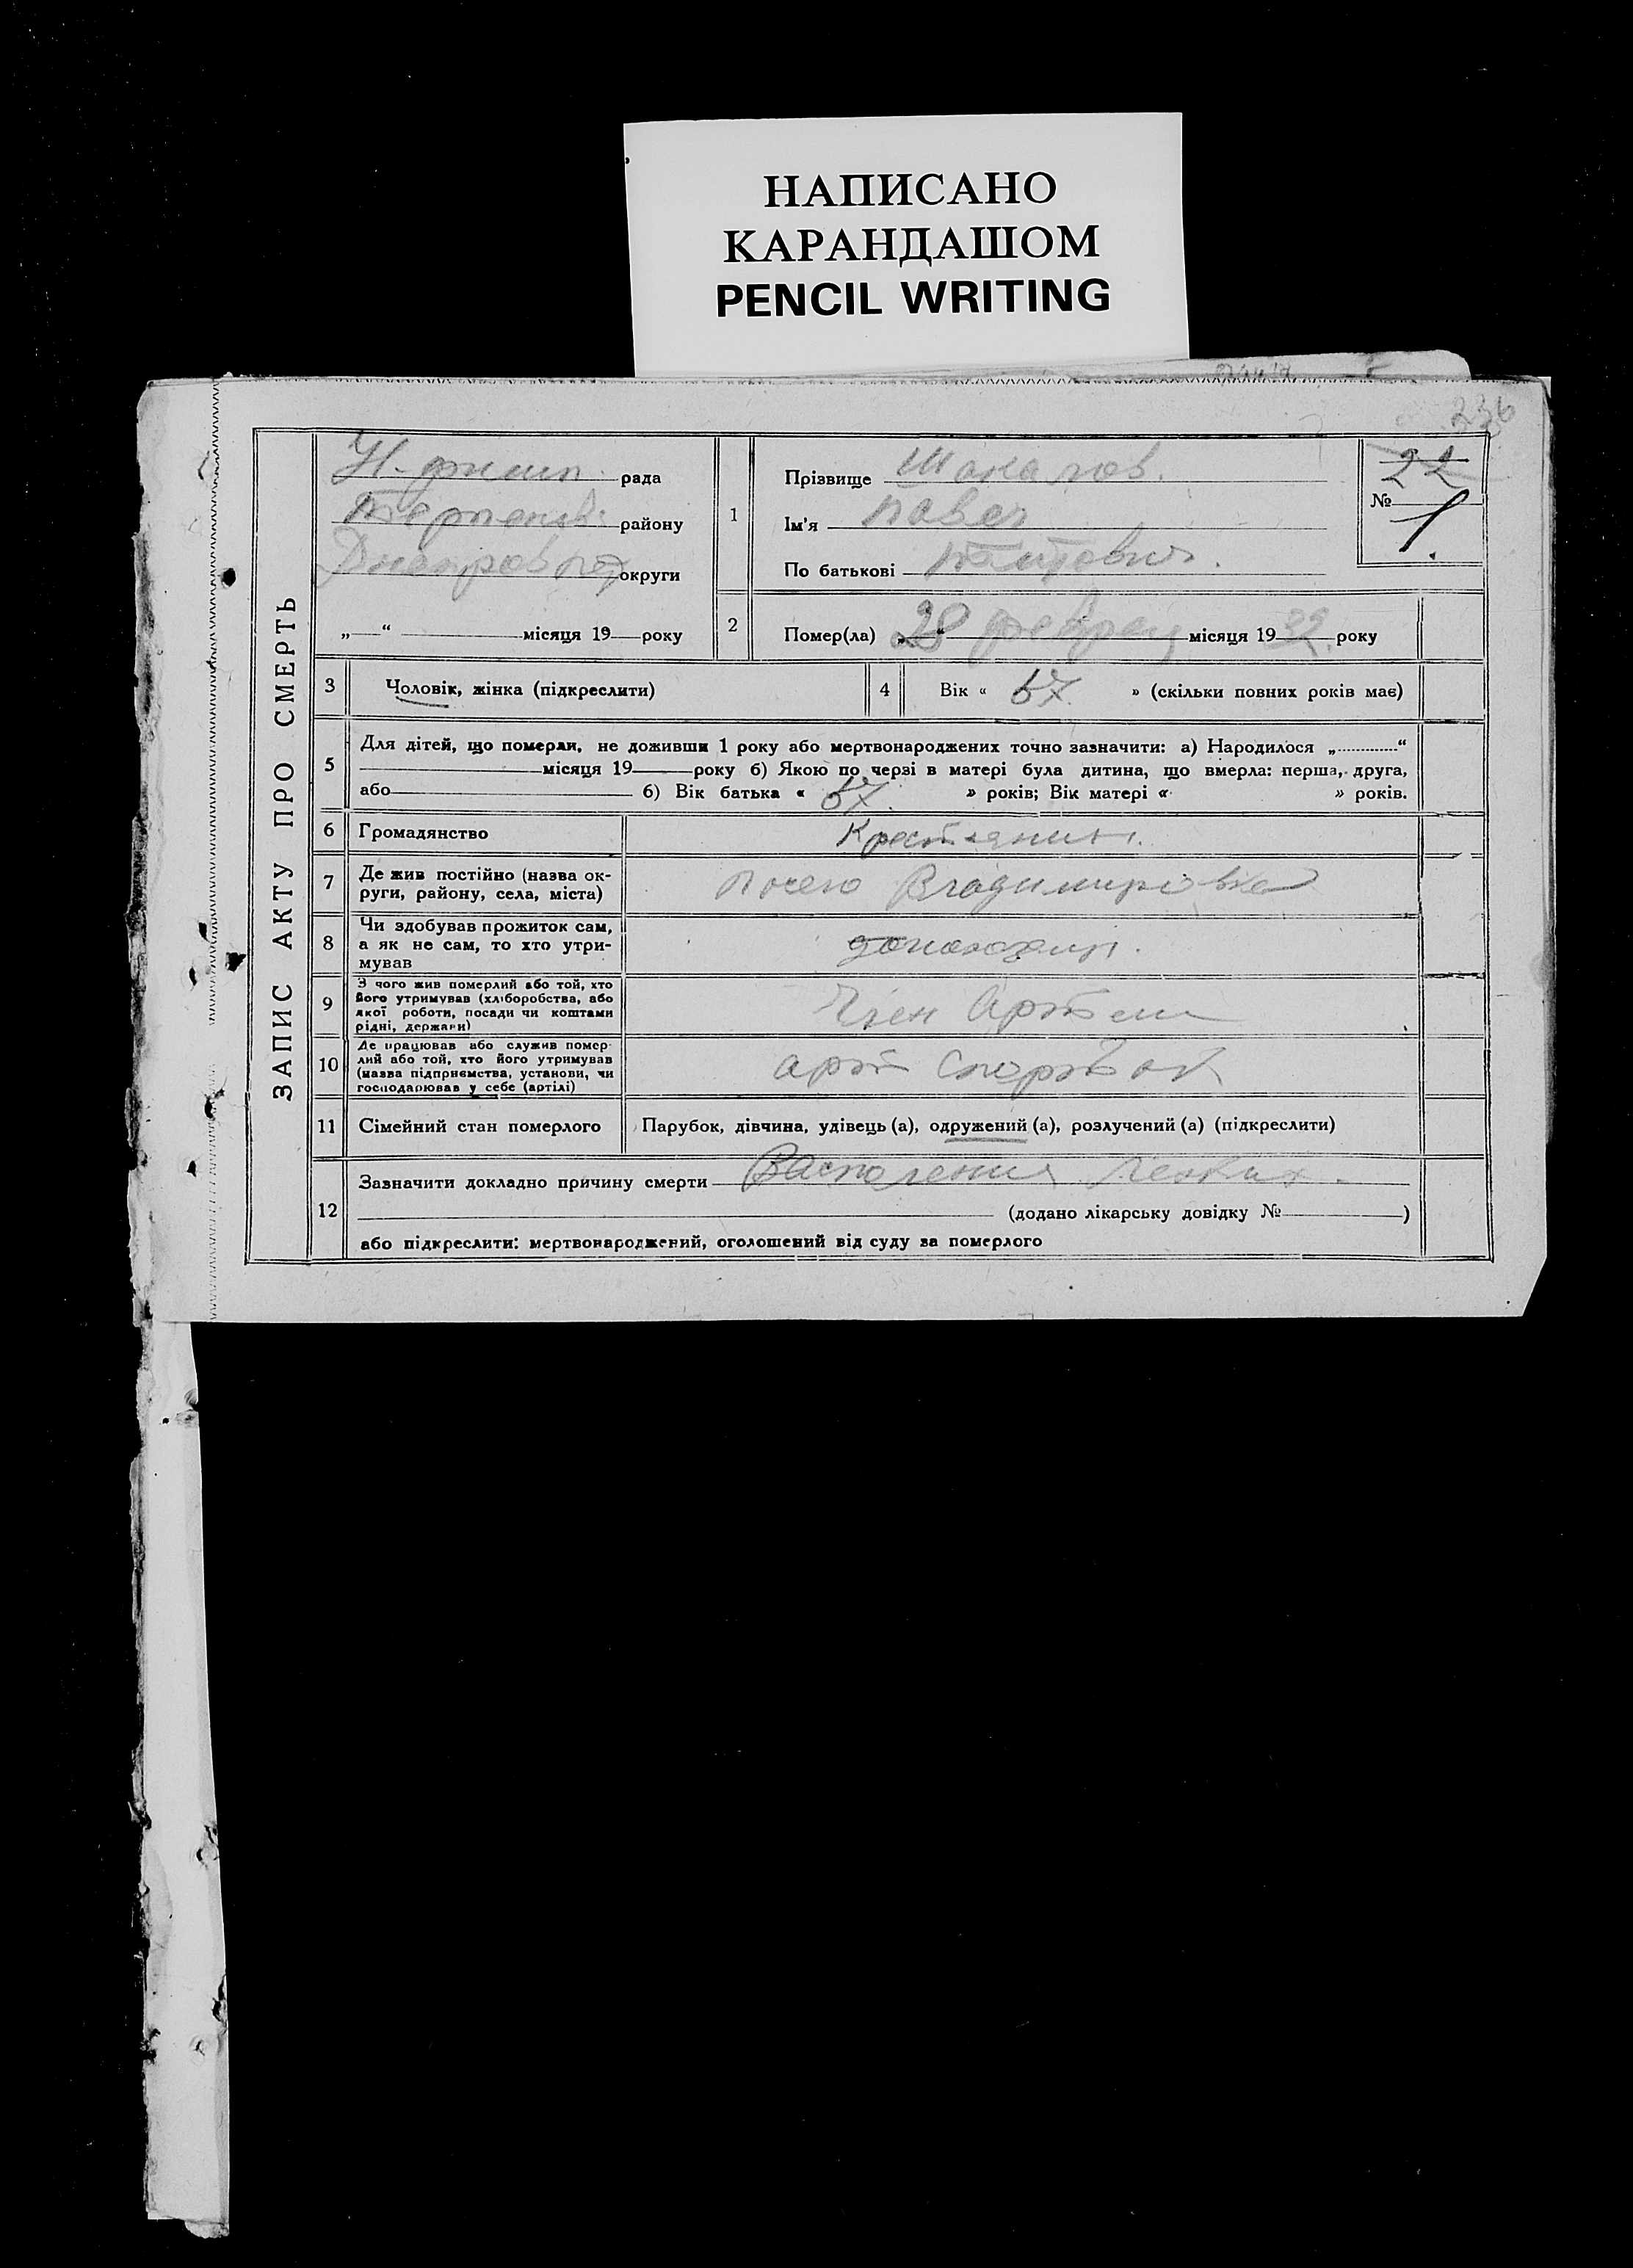 НАПИСАНО
КАРАНДАШОМ
PENCIL WRITING
236
ЗАПИС АКТУ ПРО СМЕРТЬ
рада
району
округи
„—“ місяця 19 року
1
Прізвище
Ім'я Павел
По батькові
22
№ 1.
2
Помер(ла) „28“ феврец місяця 19 32 року
3 Чоловік, жінка (підкреслити)
4 Вік « 57. » (скільки повних років має)
5
Для дітей, що померли, не доживши 1 року або мертвонароджених точно зазначити: а) Народилося „ “
місяця 19 року б) Якою по черзі в матері була дитина, що вмерла: перша, друга,
або б) Вік батька « 57. » років; Вік матері « » років.
6 Громадянство Крестянин.
7 Де жив постійно (назва ок-
руги, району, села, міста) Владимировка
8 Чи здобував прожиток сам,
а як не сам, то хто утри-
мував
9 З чого жив померлий або той, хто
його утримував (хліборобства, або
якої роботи, посади чи коштами
рідні, держави) Член Артели
10 Де працював або служив помер-
лий або той, хто його утримував
(назва підприємства, установи, чи
господарював у себе (артілі) арт
11 Сімейний стан померлого Парубок, дівчина, удівець (а), одружений (а), розлучений (а) (підкреслити)
12
Зазначити докладно причину смерти Васполения Легких.
(додано лікарську довідку № )
або підкреслити: мертвонароджений, оголошений від суду за померлого